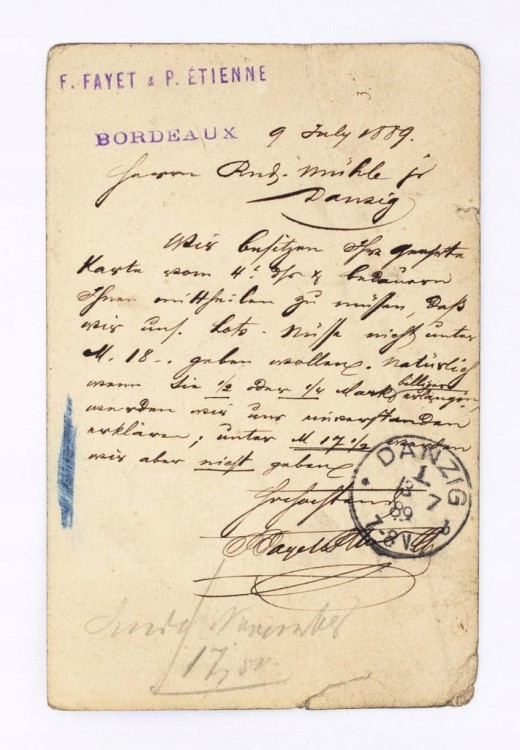 F. FAYET & P. ÉTIENNE
BORDEAUX 9 July 1889.
Herrn Rud. Mühle jr
Danzig
Wir besitzen Ihre geehrte
Karte vom 4. & bedauern
Ihnen mittheilen zu müssen, daß
wir uns. Nüsse nicht unter
M. 18-. geben wollen. Natürlich
wenn Sie 1/2 oder 1/4 Mark billiger
erlangen,
werden wir uns einverstanden
erklären; unter M 17 1/2 werden
wir aber nicht geben
DANZIG
1
13 7
89
7-8 N
Hochachtend
Fayet
November
17,50